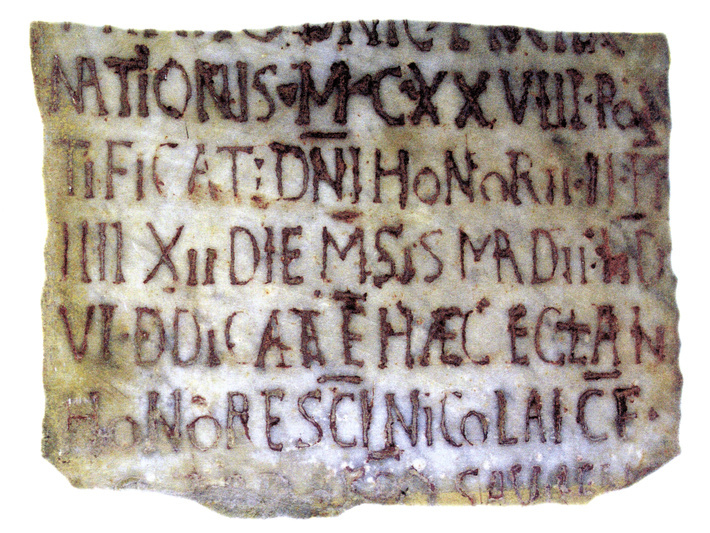 NATIONIS · M · C · XX VIIII · PON
TIFICAT: DNI HONORII · II · PP
IIII XII DIE MSIS MADII · IND
VI · DDICATA E HÆC ECLA N
HONORE SCI NiCOLAI CF ·